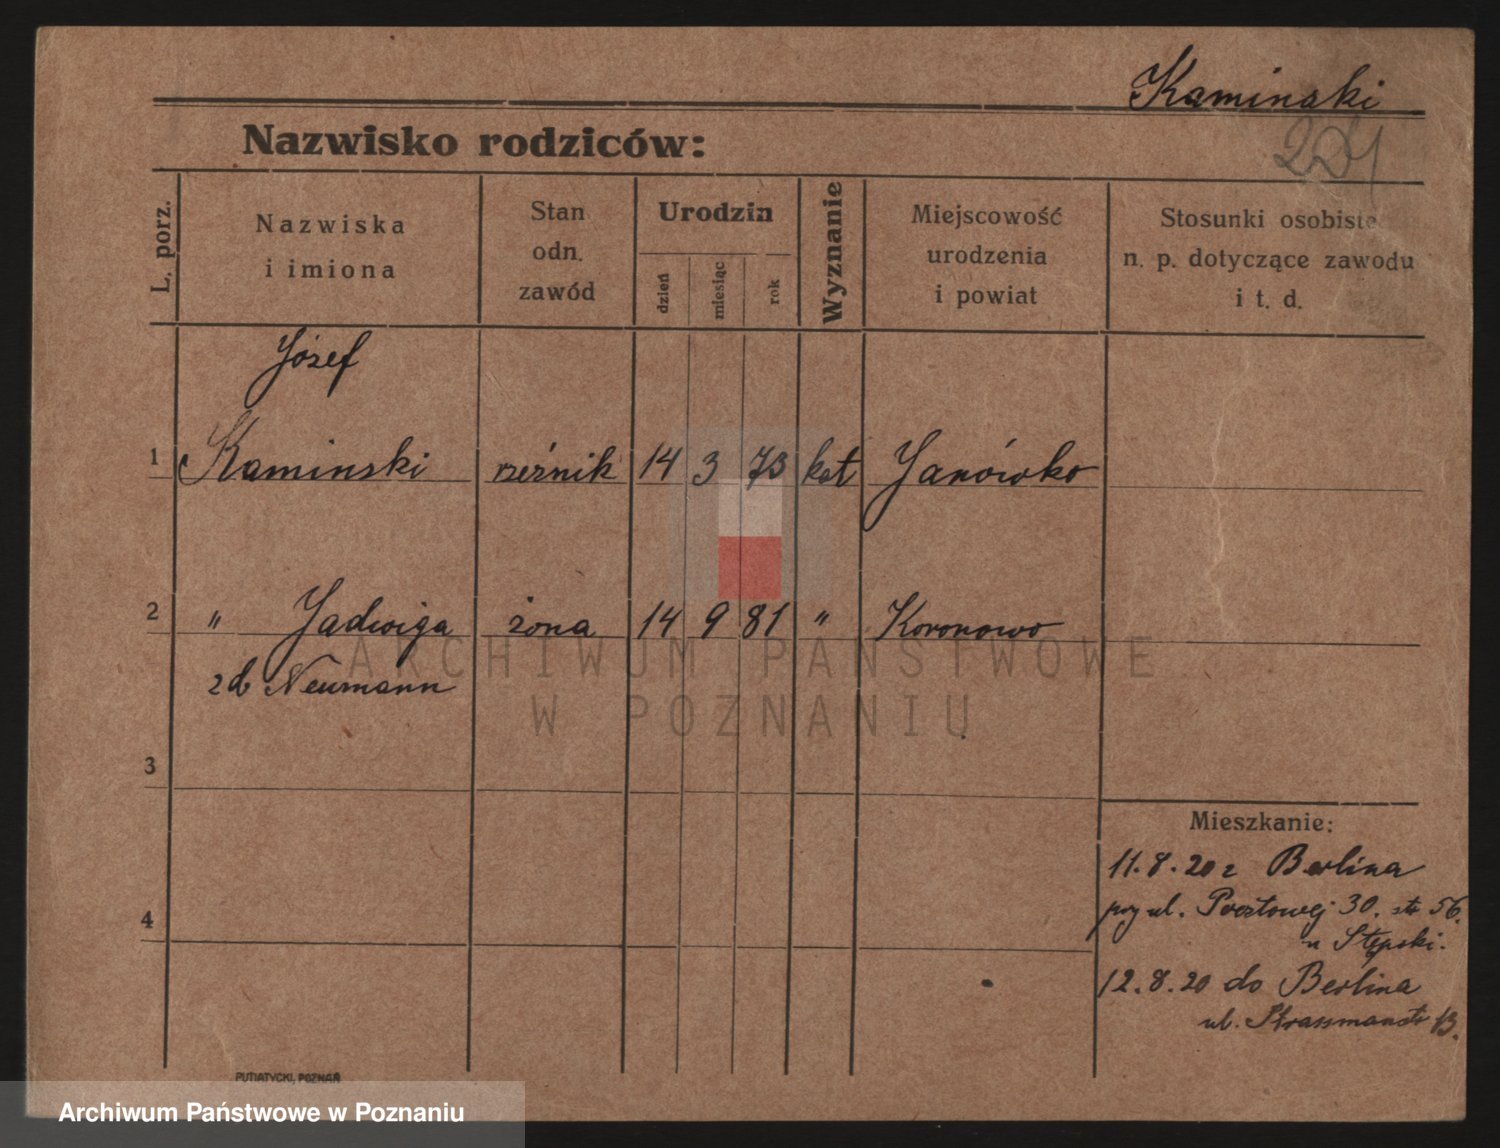 Kaminski
Nazwisko rodziców:
L. porz.
Nazwiska
i imiona
Stan
odn.
zawód
Urodzin
dzień
miesiąc
rok
Wyznanie
Miejscowość
urodzenia
i powiat
Stosunki osobiste
n. p. dotyczące zawodu
i t. d.
Józef
1 Kaminski rzeźnik 14 3 73 kat Janówko
2 " Jadwiga żona 14 9 81 " Koronowo
zd Neumann
3
4
Mieszkanie:
11.8.20 z Berlina
przy ul. Pocztowej 30. 56.
u Stępski.
12.8.20 do Berlina
ul. Strassmanstr 13.
PUTIATYCKI, POZNAŃ
ARCHIWUM PAŃSTWOWE
W POZNANIU
Archiwum Państwowe w Poznaniu